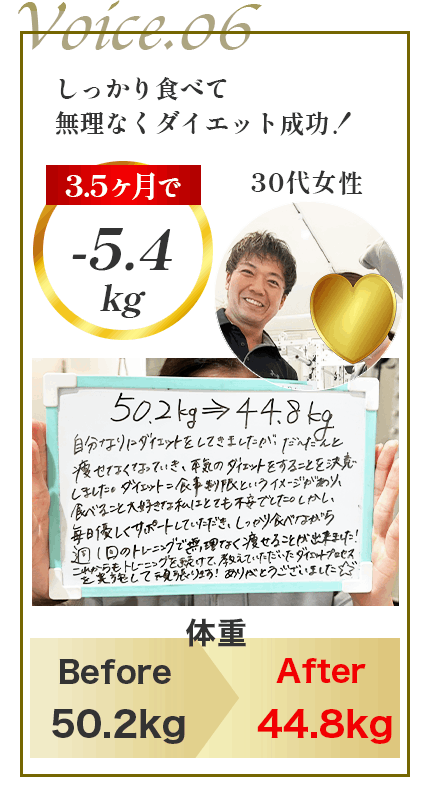 Voice.06
しっかり食べて
無理なくダイエット成功!
3.5ヶ月で
30代女性
-5.4
kg
50.2kg⇒44.8kg
自分なりにダイエットをしてきましたが、だんだんと
痩せなくなっていき、本気のダイエットをすることを決意
しました。ダイエット=食事制限というイメージがあり、
食べること大好きな私にとても不安でした。しかし、
毎日優しくサポートしていただき、しっかり食べながら
週1回のトレーニングで無理なく痩せることが出来ました!
これからもトレーニングを続けて、教えていただいたダイエットプロセス
を実行して頑張ります!ありがとうございました☆
体重
Before
After
50.2kg
44.8kg